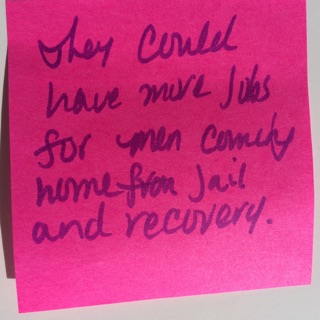 They could
have more jobs
for men coming
home from Jail
and recovery.